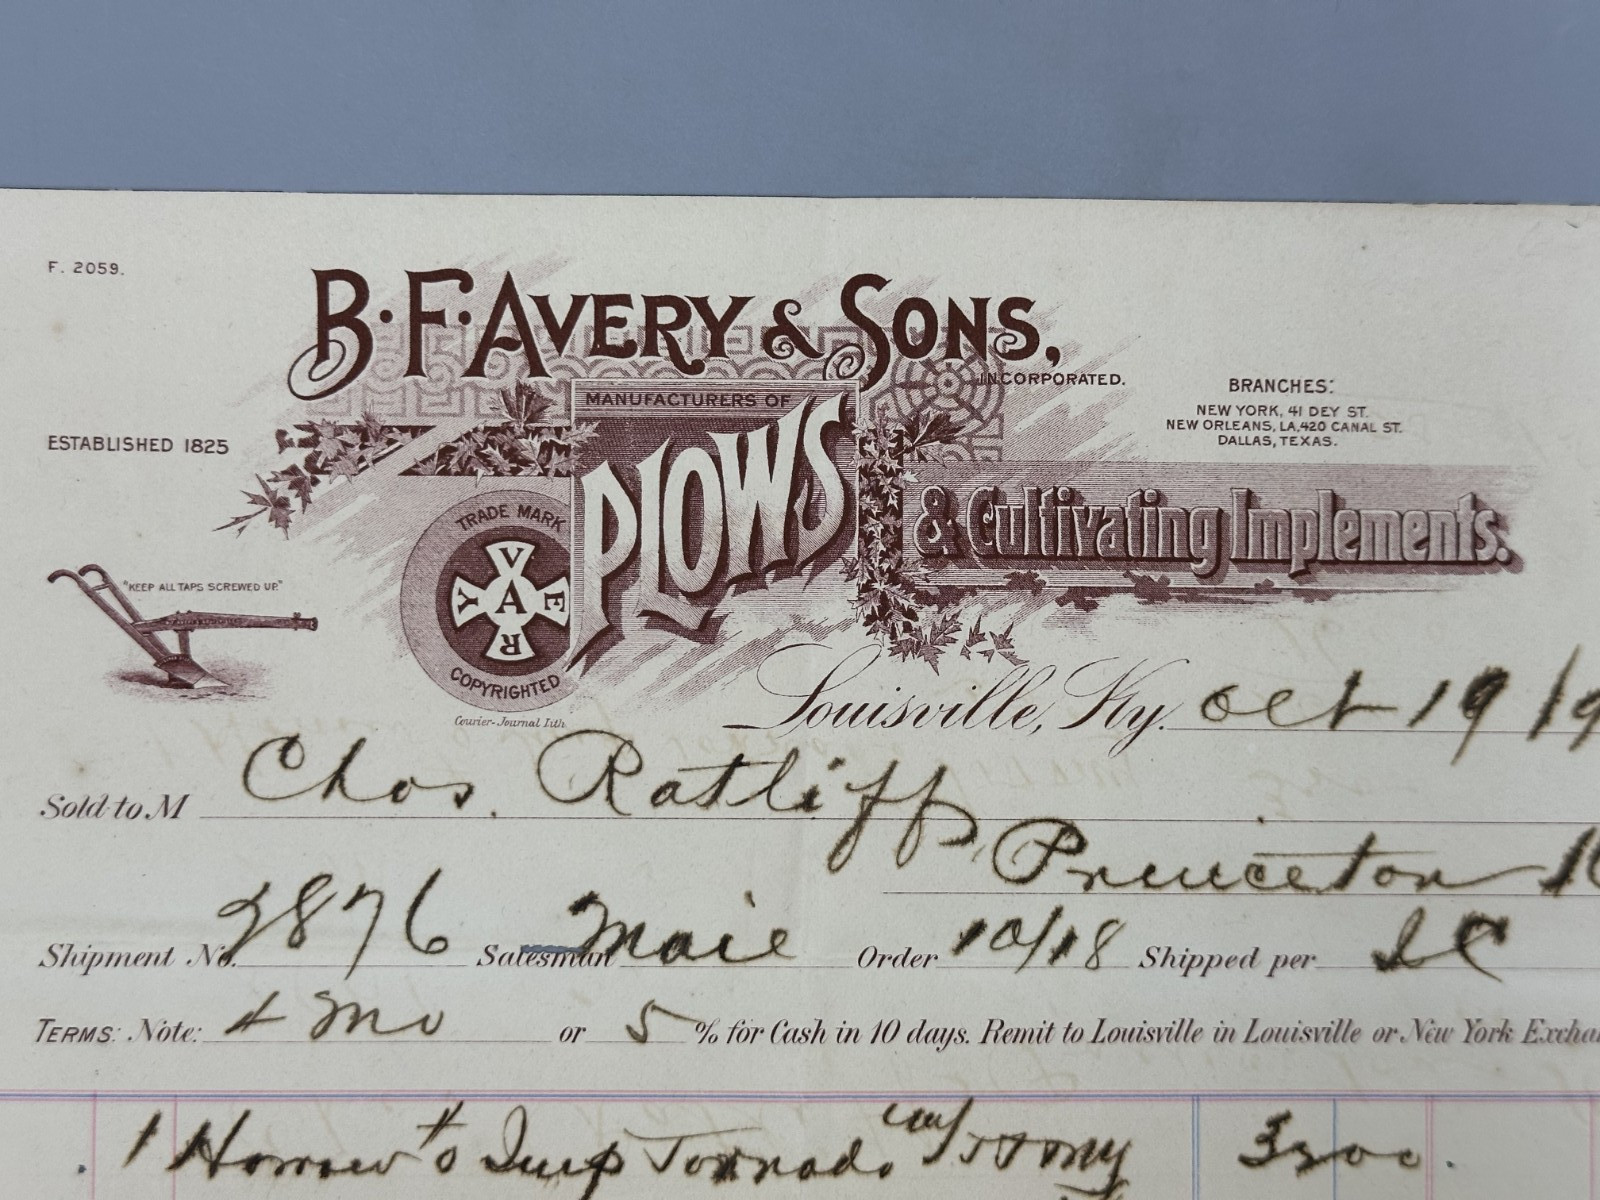 F. 2059.
B. F. AVERY & SONS,
INCORPORATED.
MANUFACTURERS OF
PLOWS
& Cultivating Implements.
BRANCHES:
NEW YORK, 41 DEY ST.
NEW ORLEANS, LA, 420 CANAL ST.
DALLAS, TEXAS.
ESTABLISHED 1825
"KEEP ALL TAPS SCREWED UP."
TRADE MARK
AVERY
COPYRIGHTED
Courier-Journal Lith.
Louisville, Ky. Oct 19 19
Sold to M Chas. Ratliff,
Princeton
Shipment No. 2876 Salesman Order 10/18 Shipped per IC
TERMS: Note: 4 Mo or 5 % for Cash in 10 days. Remit to Louisville in Louisville or New York
1 Harrow Tornado